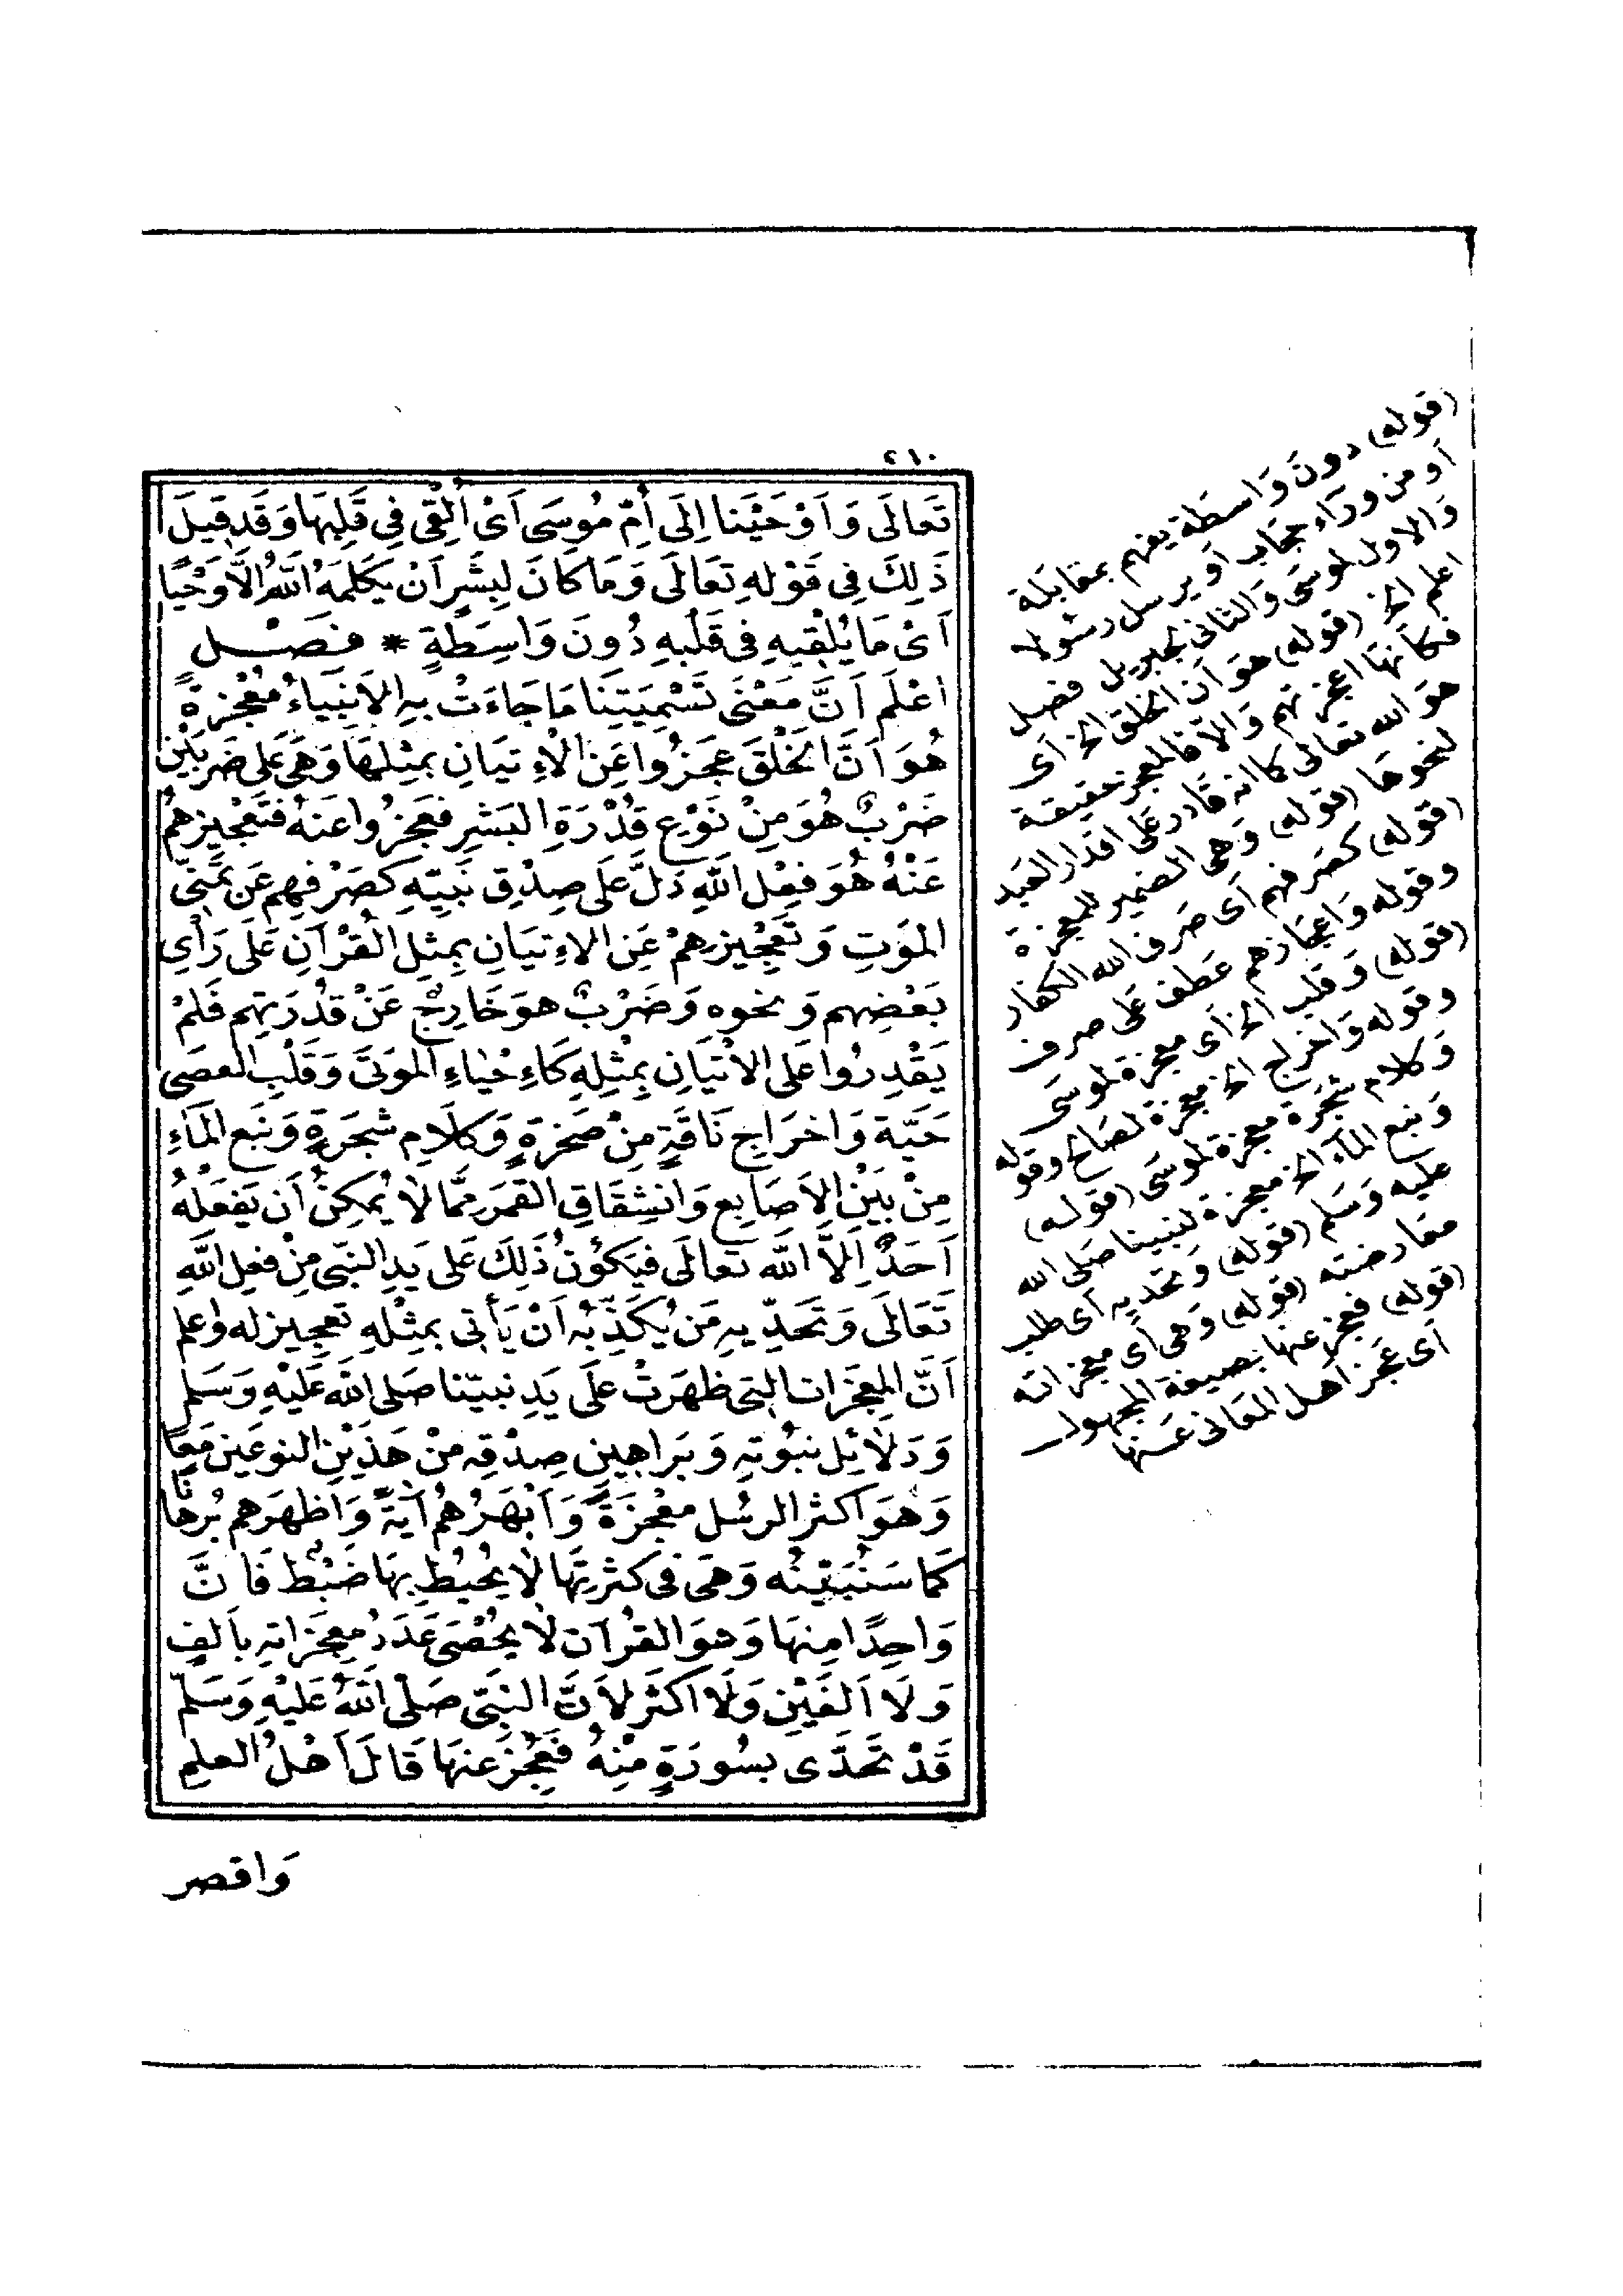 ٢١٠
تَعَالَى وَاَوْحَيْنَا اِلَى اُمِّ مُوسَى اَىْ اُلْقِىَ فِى قَلْبِهَا وَقَدْ قِيلَ
ذَلِكَ فِى قَوْلِهِ تَعَالَى وَمَا كَانَ لِبَشَرٍ اَنْ يُكَلِّمَهُ اللّٰهُ اِلَّا وَحْيًا
اَىْ مَا يُلْقِيهِ فِى قَلْبِهِ دُونَ وَاسِطَةٍ * فصـــل
اِعْلَمْ اَنَّ مَعْنَى تَسْمِيَتِنَا مَا جَاءَتْ بِهِ الاَنْبِيَاءُ مُعْجِزَةً
هُوَ اَنَّ الْخَلْقَ عَجَزُوا عَنِ الْاِتْيَانِ بِمِثْلِهَا وَهِىَ عَلَى ضَرْبَيْنِ
ضَرْبٌ هُوَ مِنْ نَوْعِ قُدْرَةِ البَشَرِ فَعَجَزُوا عَنْهُ فَتَعْجِيزُهُمْ
عَنْهُ هُوَ فِعْلٌ اللّٰهِ دَلَّ عَلَى صِدْقِ نَبِيِّهِ كَصَرْفِهِمْ عَنْ تَمَنِّى
المَوْتِ وَتَعْجِيزِهِمْ عَنِ الاِتْيَانِ بِمِثْلِ القُرْآنِ عَلَى رَأْىِ
بَعْضِهِمْ وَنَحْوِهِ وَضَرْبٌ هُوَ خَارِجٌ عَنْ قُدْرَتِهِمْ فَلَمْ
يَقْدِرُوا عَلَى الاِتْيَانِ بِمِثْلِهِ كَاِحْيَاءِ المَوْتَى وَقَلْبِ العَصَى
حَيَّةً وَاِخْرَاجِ نَاقَةٍ مِنْ صَخْرَةٍ وَكَلَامِ شَجَرَةٍ وَنَبْعِ المَاءِ
مِنْ بَيْنِ الاَصَابِعِ وَانْشِقَاقِ القَمَرِ مِمَّا لَا يُمْكِنُ اَنْ يَفْعَلَهُ
اَحَدٌ اِلَّا اللّٰه تَعَالَى فَيَكُونُ ذَلِكَ عَلَى يَدِ النَّبِىِّ مِنْ فِعْلِ اللّٰهِ
تَعَالَى وَتَحَدِّيهِ مَنْ يُكَذِّبُهُ اَنْ يَأْتِىَ بِمِثْلِهِ تَعْجِيزٌ لَهُ وَاعْلَمْ
اَنَّ المُعْجِزَاتِ الَّتِى ظَهَرَتْ عَلَى يَدِ نَبِيِّنَا صَلَى اللّٰه عَلَيْهِ وَسَلم
وَدَلَائِلَ نُبُوَّتِهِ وَبَرَاهِينَ صِدْقِهِ مِنْ هَذَيْنِ النَوْعَيْنِ مَعًا
وَهُوَ اَكْثَرُ الرُسُلِ مُعْجِزَةً وَاَبْهَرُهُمْ آيَةً وَاَظْهَرُهُمْ بُرْهَانًا
كَمَا سَنُبَيِّنُهُ وَهِىَ فِى كَثْرَتِهَا لَا يُحِيطُ بِهَا ضَبْطٌ فَاِنَّ
وَاحِدًا مِنْهَا وَهُوَ القُرْآنُ لَا يُحْصَى عَدَدُ مُعْجِزَاتِهِ بِاَلْفٍ
وَلَا اَلْفَيْنِ وَلَا اَكْثَرَ لِاَنَّ النَّبِىَّ صَلَّى اللّٰهُ عَلَيْهِ وَسَلَّمَ
قَدْ تَحَدَّى بِسُورَةٍ مِنْهُ فَعُجِزَ عَنْهَا قَالَ اَهْلُ العِلْمِ
وَاقصر
(قوله) دون وَاسطَة يفهم بمقابلة
اَو من ورَاء حجَاب اَو يرسل رسُولا
وَالاول لموسَى وَالثانى بجبريل فصل
اعلم الخ (قوله) هوَ اَن الخلق الخ اَى
فكانهَا اعجزتهم وَالا فالمعجز حقيقة
هوَ الله تعالى كما انه قَادر عَلى اقدار العَبد
لنحوهَا (قوله) وَهى الضمير للمعجزة
(قوله) كصَرفهم اَى صَرف الله الكفار
وقوله وَاعجازهم عَطف عَلى صرف
(قوله) وَقلب الخ اَى معجزة لموسَى
وقوله وَاخراج الخ معجزة لصَالح وقوله
وَكلام شجَرة معجزة لموسَى (قوله)
وَنبع المَاء الخ معجزة لنبينا صَلى الله
عليه وَسَلم (قوله) وَتحديه اَى طلب
معَارضته (قوله) وَهى اَى معجزاته
(قوله) فعجز عنها بصيغة المجهول
اَى عَجز اهل المعَانى عَنها